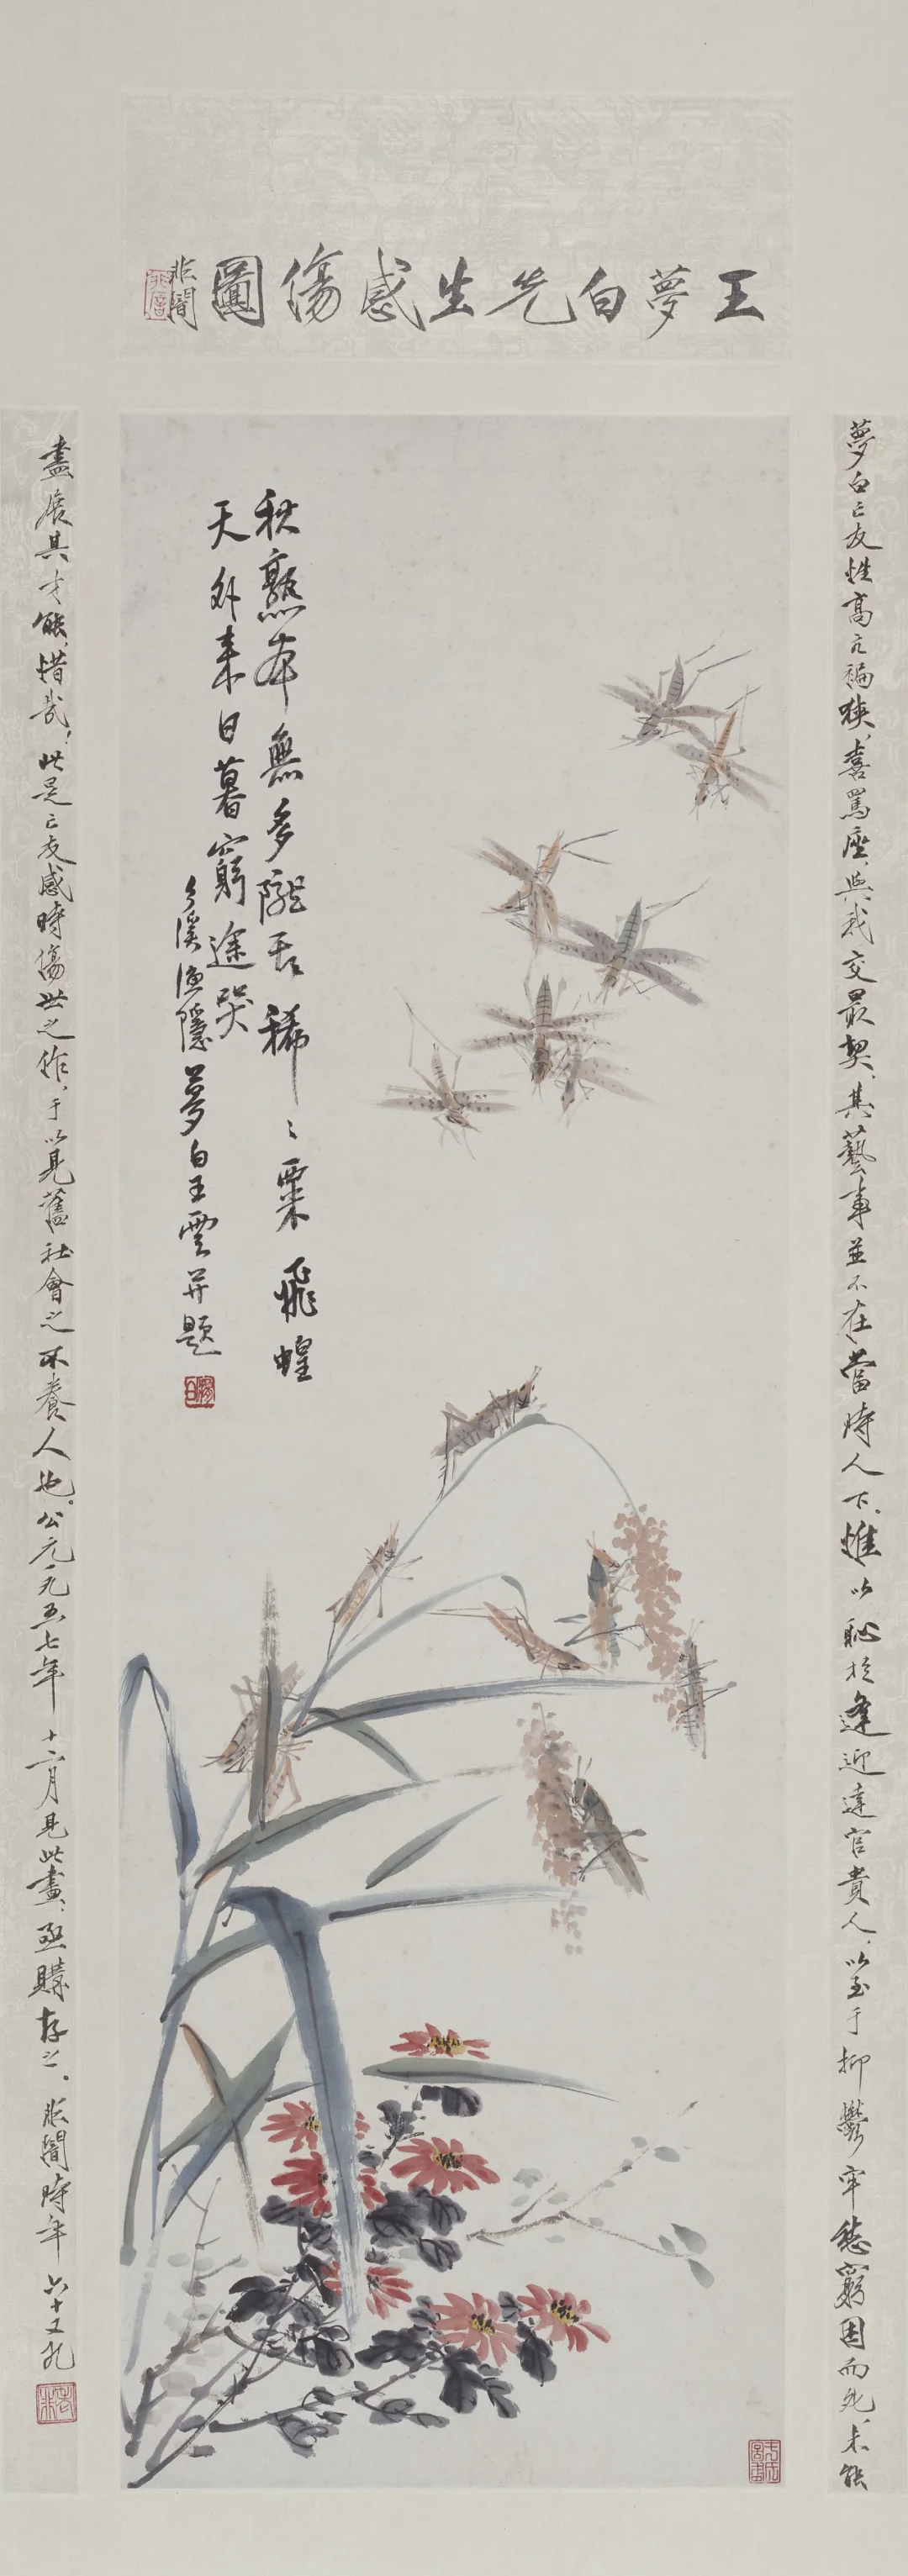 王夢白先生感傷圖
非闇
夢白亡友性高亢褊狹,喜罵座,與我交最契,其藝事並不在當時人下。惟以恥於逢迎達官貴人,以至于抑鬱牢愁窮困而死,未能
秋熟本無多隴稀〻粟飛蝗
天外来日暮窮途哭
彡溪漁隱夢白王雲并題
夢白
盡展其才能,惜哉!此是亡友感時傷世之作,于以見舊社會之不養人也。公元一九五七年十二月見此畫,亟購存之。非闇時年六十又九